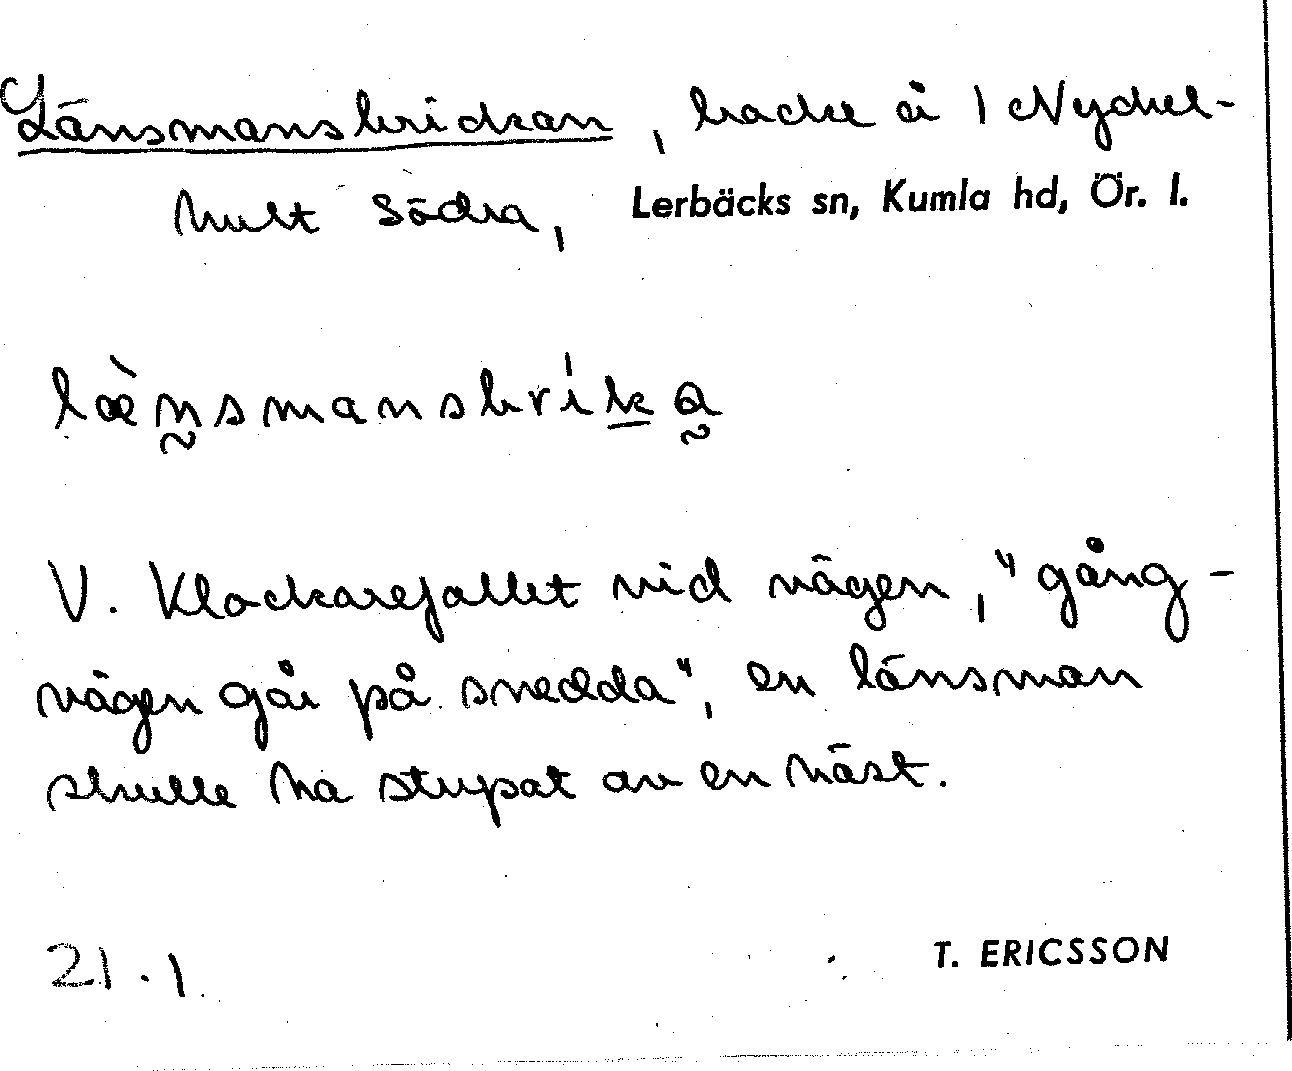 Länsmansbrickan, backe å 1 Nyckel-
hult Södra, Lerbäcks sn, Kumla hd, Ör. l.
læ̀nsmansbríka
V. Klockarefallet vid vägen, "gång-
vägen går på snedda", en länsman
skulle ha stupat av en häst.
21.1
T. ERICSSON